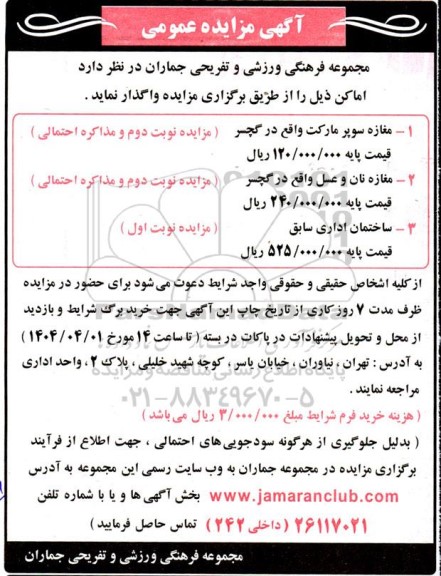 آگهی مزایده عمومی
مجموعه فرهنگی ورزشی و تفریحی جماران در نظر دارد
اماکن ذیل را از طریق برگزاری مزایده واگذار نماید .
۱- مغازه سوپر مارکت واقع در گچسر ( مزایده نوبت دوم و مذاکره احتمالی )
قیمت پایه ۱۲۰/۰۰۰/۰۰۰ ریال
۲- مغازه نان و عسل واقع در گچسر ( مزایده نوبت دوم و مذاکره احتمالی )
قیمت پایه ۲۴۰/۰۰۰/۰۰۰ ریال
۳- ساختمان اداری سابق ( مزایده نوبت اول )
قیمت پایه ۵۲۵/۰۰۰/۰۰۰ ریال
از کلیه اشخاص حقیقی و حقوقی واجد شرایط دعوت می شود برای حضور در مزایده
ظرف مدت ۷ روز کاری از تاریخ چاپ این آگهی جهت خرید برگ شرایط و بازدید
از محل و تحویل پیشنهادات در پاکات در بسته ( تا ساعت ۱۴ مورخ ۱۴۰۴/۰۴/۰۱ )
به آدرس : تهران ، نیاوران ، خیابان یاسر ، کوچه شهید خلیلی ، پلاک ۲ ، واحد اداری
مراجعه نمایند .
۰۲۱-۸۸۳۴۹۶۷۰-۵
( هزینه خرید فرم شرایط مبلغ ۳/۰۰۰/۰۰۰ ریال می باشد )
( بدلیل جلوگیری از هرگونه سودجویی های احتمالی ، جهت اطلاع از فرآیند
برگزاری مزایده در مجموعه جماران به وب سایت رسمی این مجموعه به آدرس
www.jamaranclub.com بخش آگهی ها و یا با شماره تلفن
۲۶۱۱۷۰۲۱ ( داخلی ۲۴۲ ) تماس حاصل فرمایید )
مجموعه فرهنگی ورزشی و تفریحی جماران